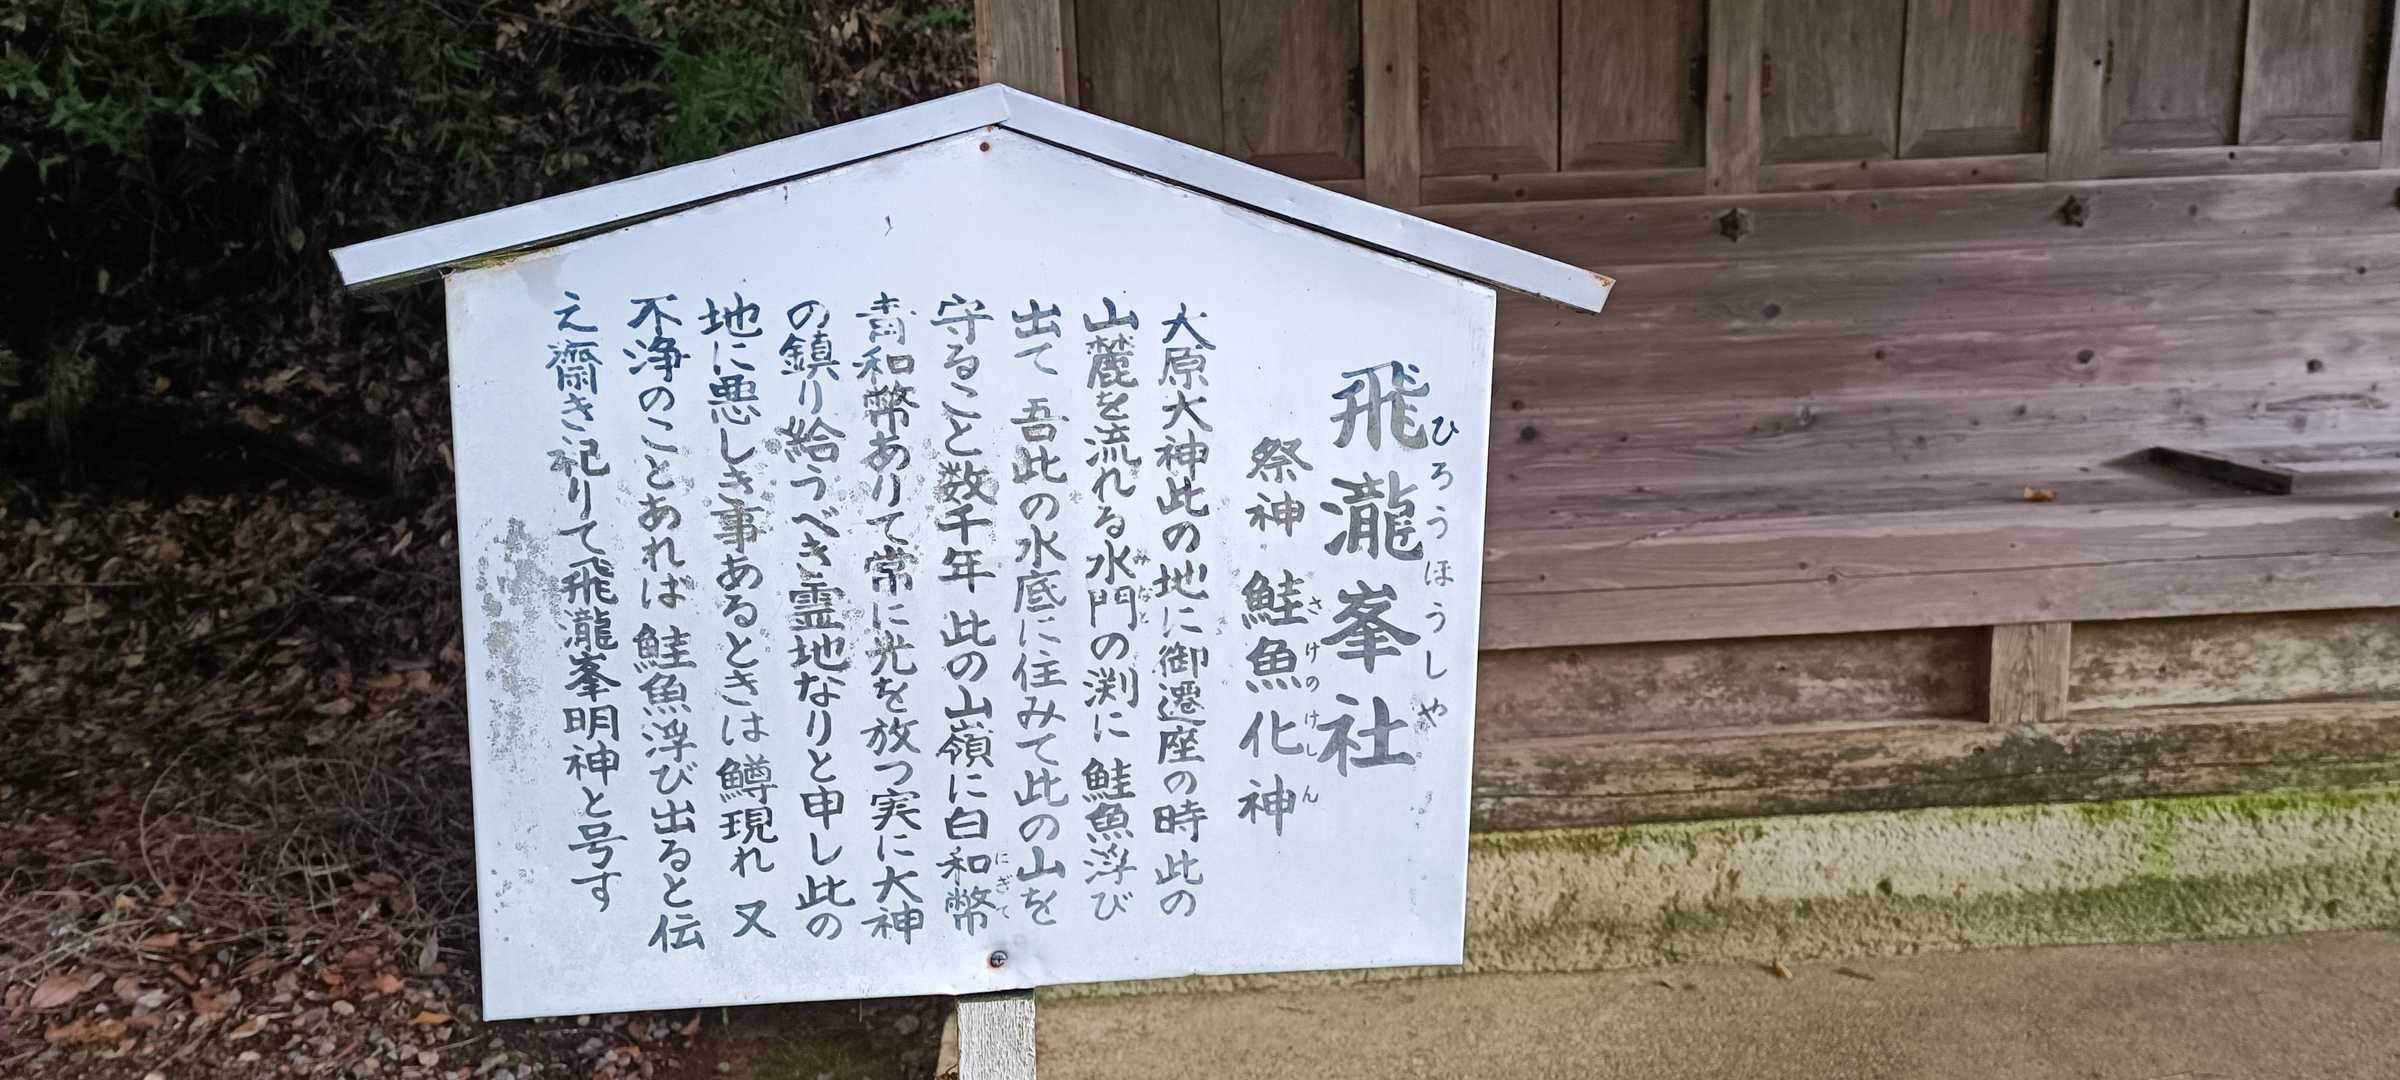 飛瀧峯社
ひろうほうしや
祭神 鮭魚化神
さけのけしん
大原大神此の地に御遷座の時此の
山麓を流れる水門の渕に鮭魚浮び
みなと
出て 吾此の水底に住みて此の山を
守ること数千年 此の山嶺に白和幣
にぎて
青和幣ありて常に光を放つ実に大神
の鎮り給うべき霊地なりと申し此の
地に悪しき事あるときは鱒現れ 又
不浄のことあれば 鮭魚浮び出ると伝
え齋き祀りて飛瀧峯明神と号す